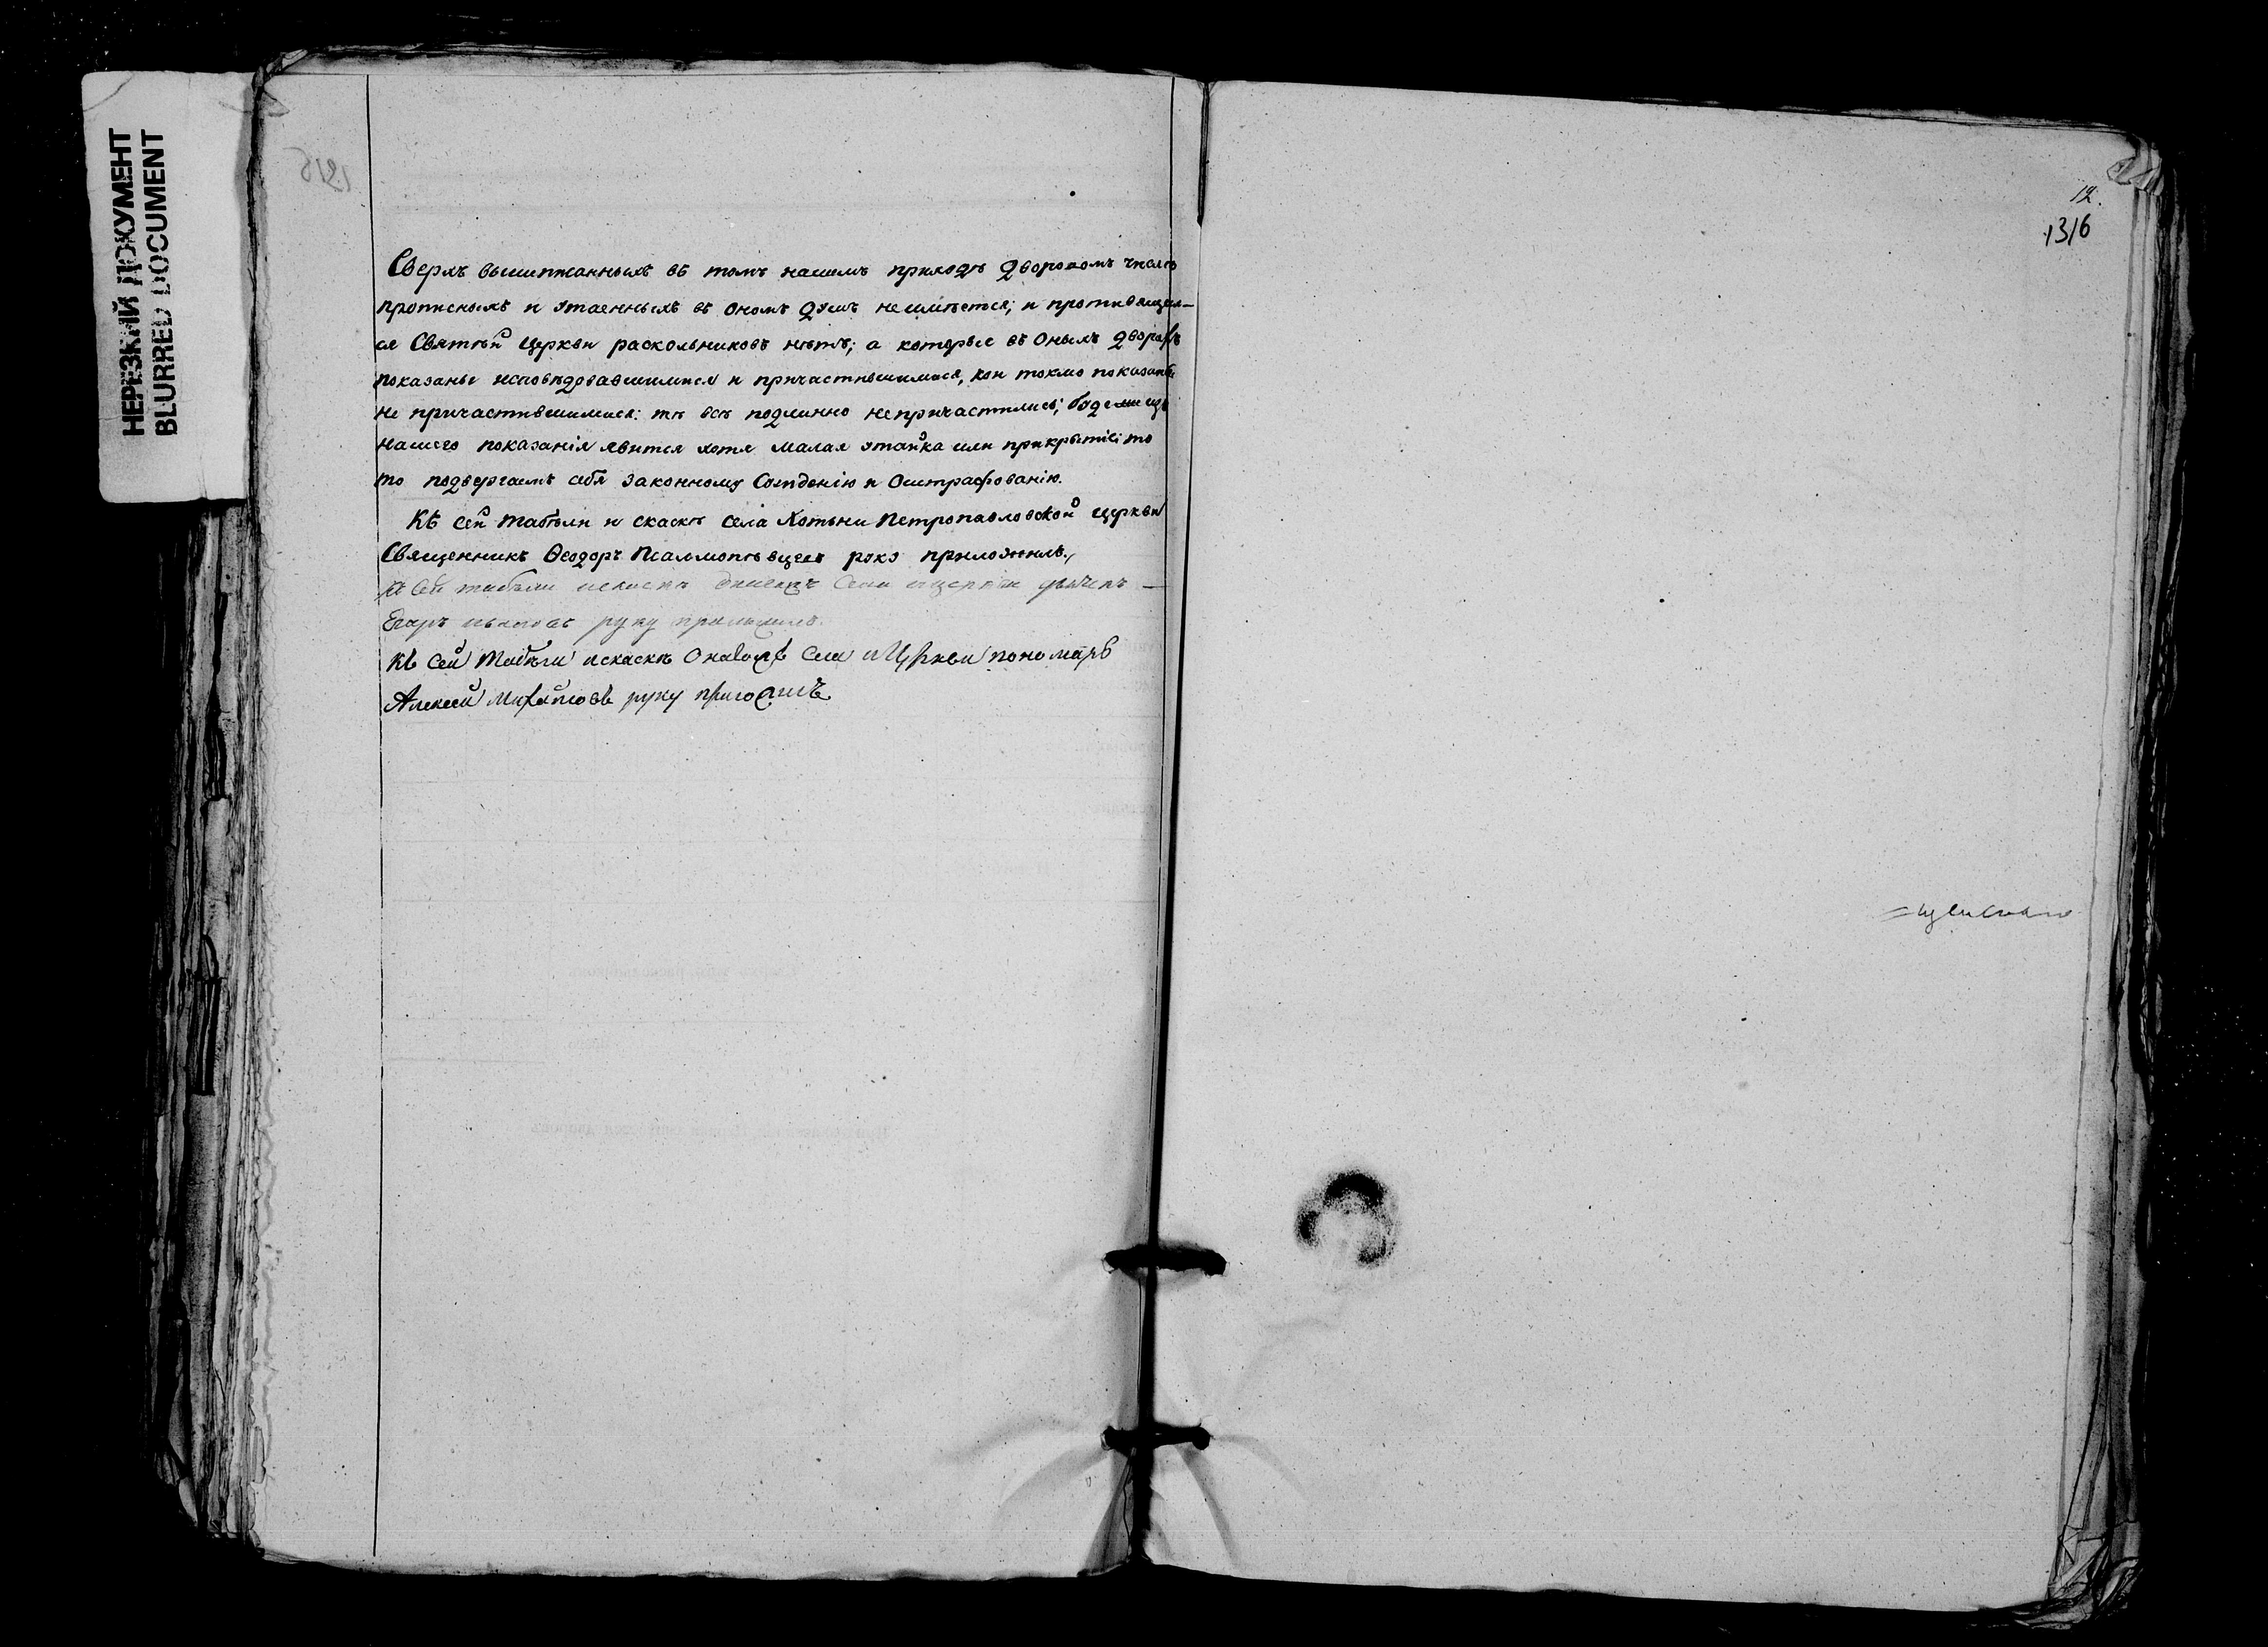 НЕРЕЗКИЙ ДОКУМЕНТ
BLURRED DOCUMENT
Сверхъ вышеписанныхъ въ томъ нашемъ приходѣ дворовомъ числѣ
прописныхъ и утаенныхъ въ ономъ душъ неимѣется; и противящих-
ся Святѣй Церкви раскольниковъ нѣтъ; а которые въ оныхъ дворахъ
показаны исповѣдовавшимися и причастившимися, кои токмо показаны
не причастившимися: тѣ всѣ подлинно непричастились; буде изъ
нашего показанія явится хотя малая утайка или прикрытіе: то
то подвергаемъ себя законному Сужденію и Оштрафованію.
Къ сей табѣли и сказкѣ села Хотыни Петропавловской Церкви
Священникъ Ѳеодоръ руку приложилъ.
Къ Сей табѣли искаскѣ села ицеркви дьячекъ
Егоръ руку приложилъ.
Къ Сей Табѣли искаскѣ Онагожъ Села иЦеркви пономарь
Алексей Михайловъ руку приложилъ
12.
1316